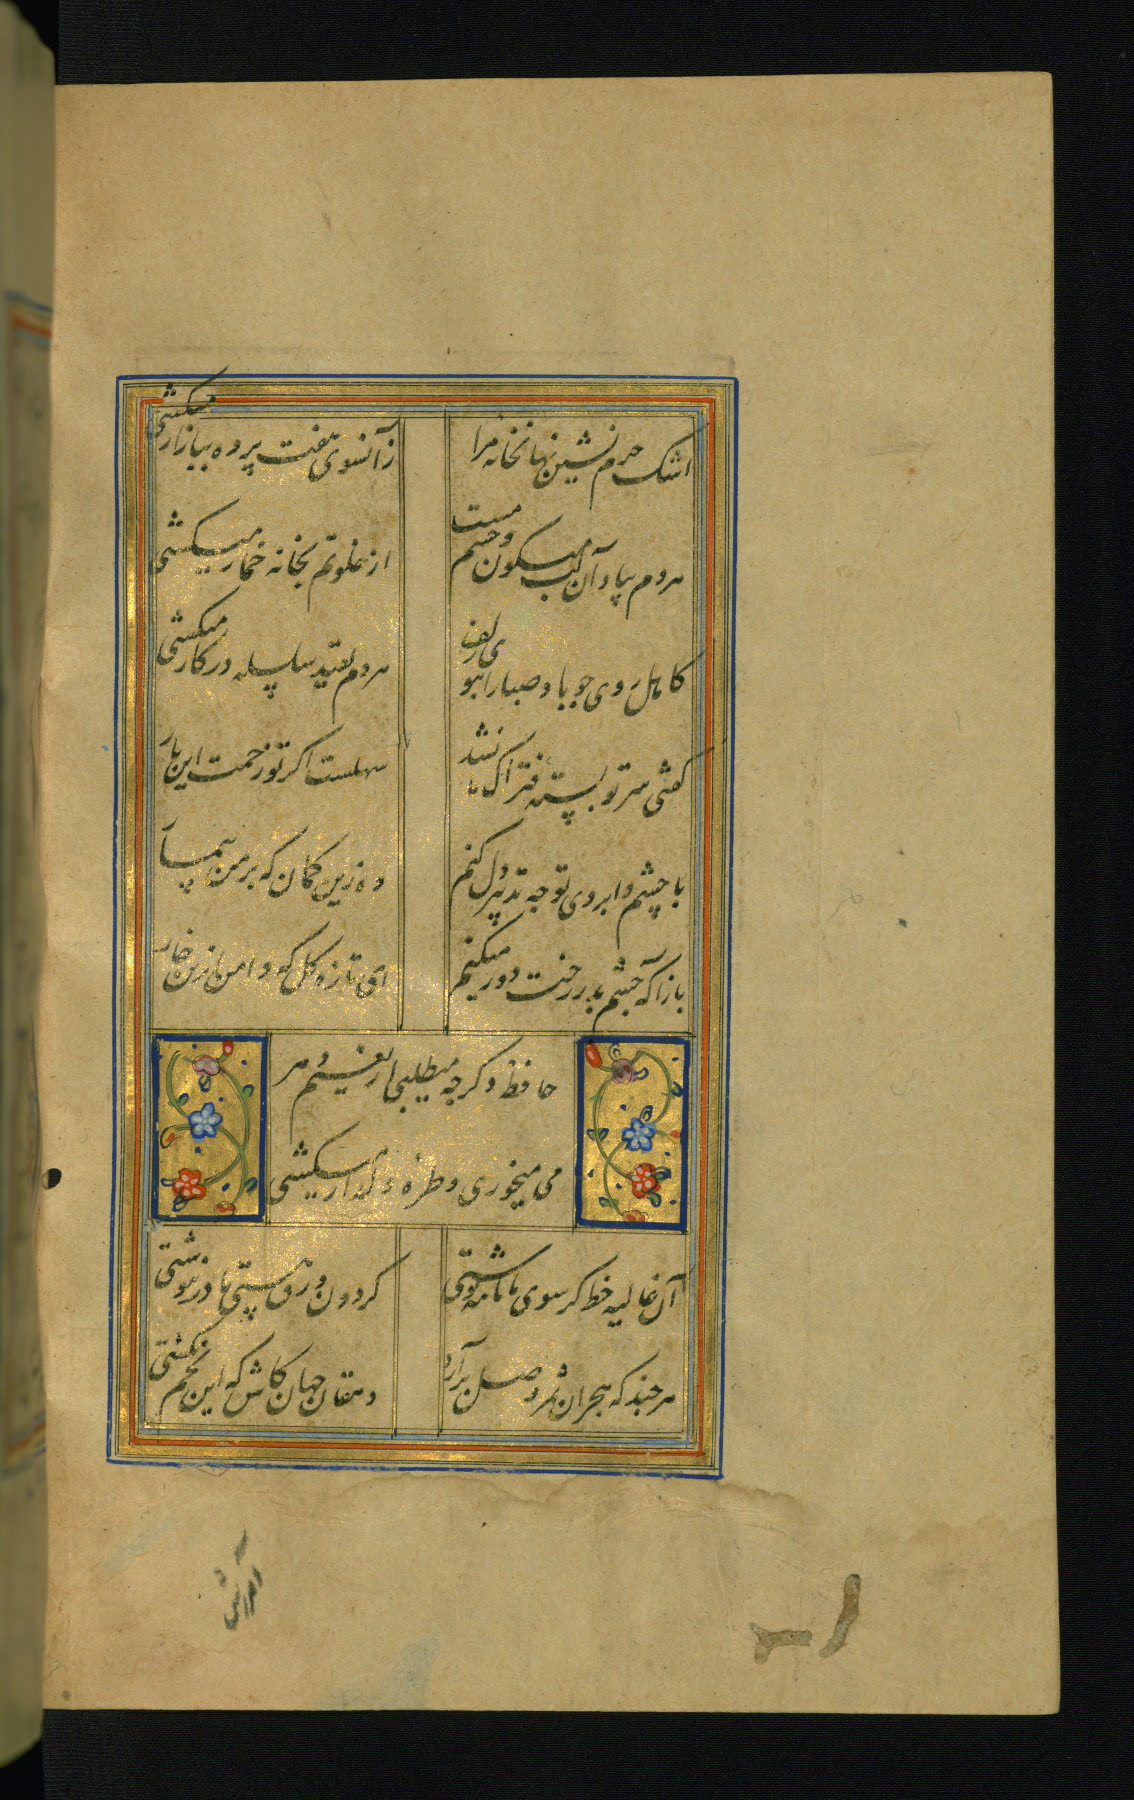 اشک حرم نشین نهانخانه مرا
زآنسوی هفت پرده ببازار میکشی
هردم بیاد آن لب میکون و چشم مست
از خلوتم بخانه خمار میکشی
کاهل روی چو باد صبا را ببوی زلف
هردم بقید سلسله در کار میکشی
کفتی سر تو بسته فتراک ما نشد
سهلست اکر تو زحمت این بار
با چشم و ابروی تو چه تدبیر دل کنم
وه زین کمان که بر من بیمار
بازآ که چشم بد ز رخت دور میکنم
ای تازه کل که دامن ازین خار
حافظ دکر چه میطلبی از نعیم دهر
می میخوری و طره دلدار میکشی
آن غالیه خط کر سوی ما نامه نوشتی
کردون ورق هستی ما در ننوشتی
هرچند که هجران ثمر وصل برآرد
دهقان جهان کاش که این تخم نکشتی